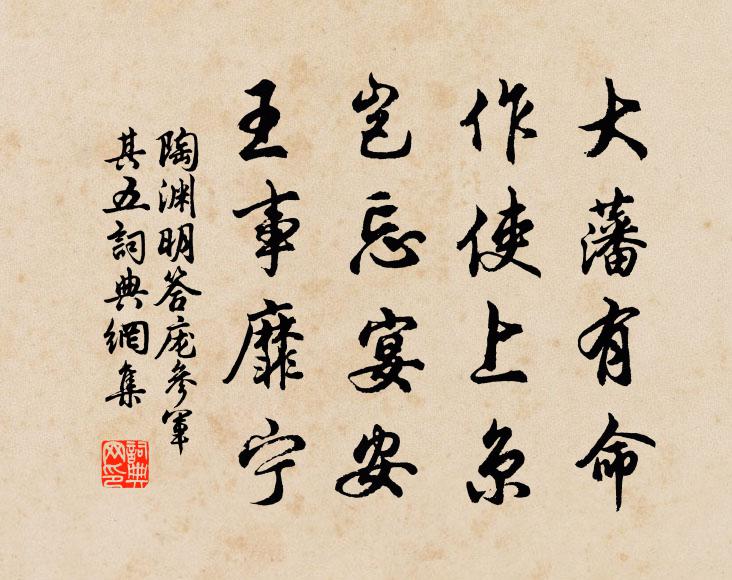 大藩有命
作使上京
岂忘宴安
王事靡宁
陶渊明答庞参军
其五詞典網集
詞典
网印